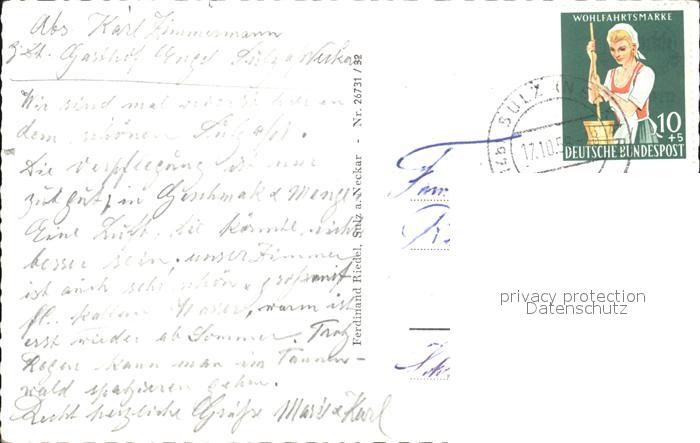 Abs. Karl Zimmermann
z. Zt. Gasthof Engel Sulz a/Neckar
Wir sind mal wieder hier in
dem schönen Sulz a/N.
Die Verpflegung ist nur
gut, in Geschmak & Menge
Eine Luft, die könnte nicht
besser sein, unser Zimmer
ist auch sehr schön & groß mit
fl. kaltem Wasser, warm ist
erst wieder ab Sommer. Trotz
Regen kann man im Tannen-
wald spatzieren gehen.
Recht herzliche Grüße Marie & Karl
Ferdinand Riedel, Sulz a. Neckar - Nr. 26731 / 32
WOHLFAHRTSMARKE
10
+5
DEUTSCHE BUNDESPOST
SULZ (NE
17.10.58
Fam.
privacy protection
Datenschutz